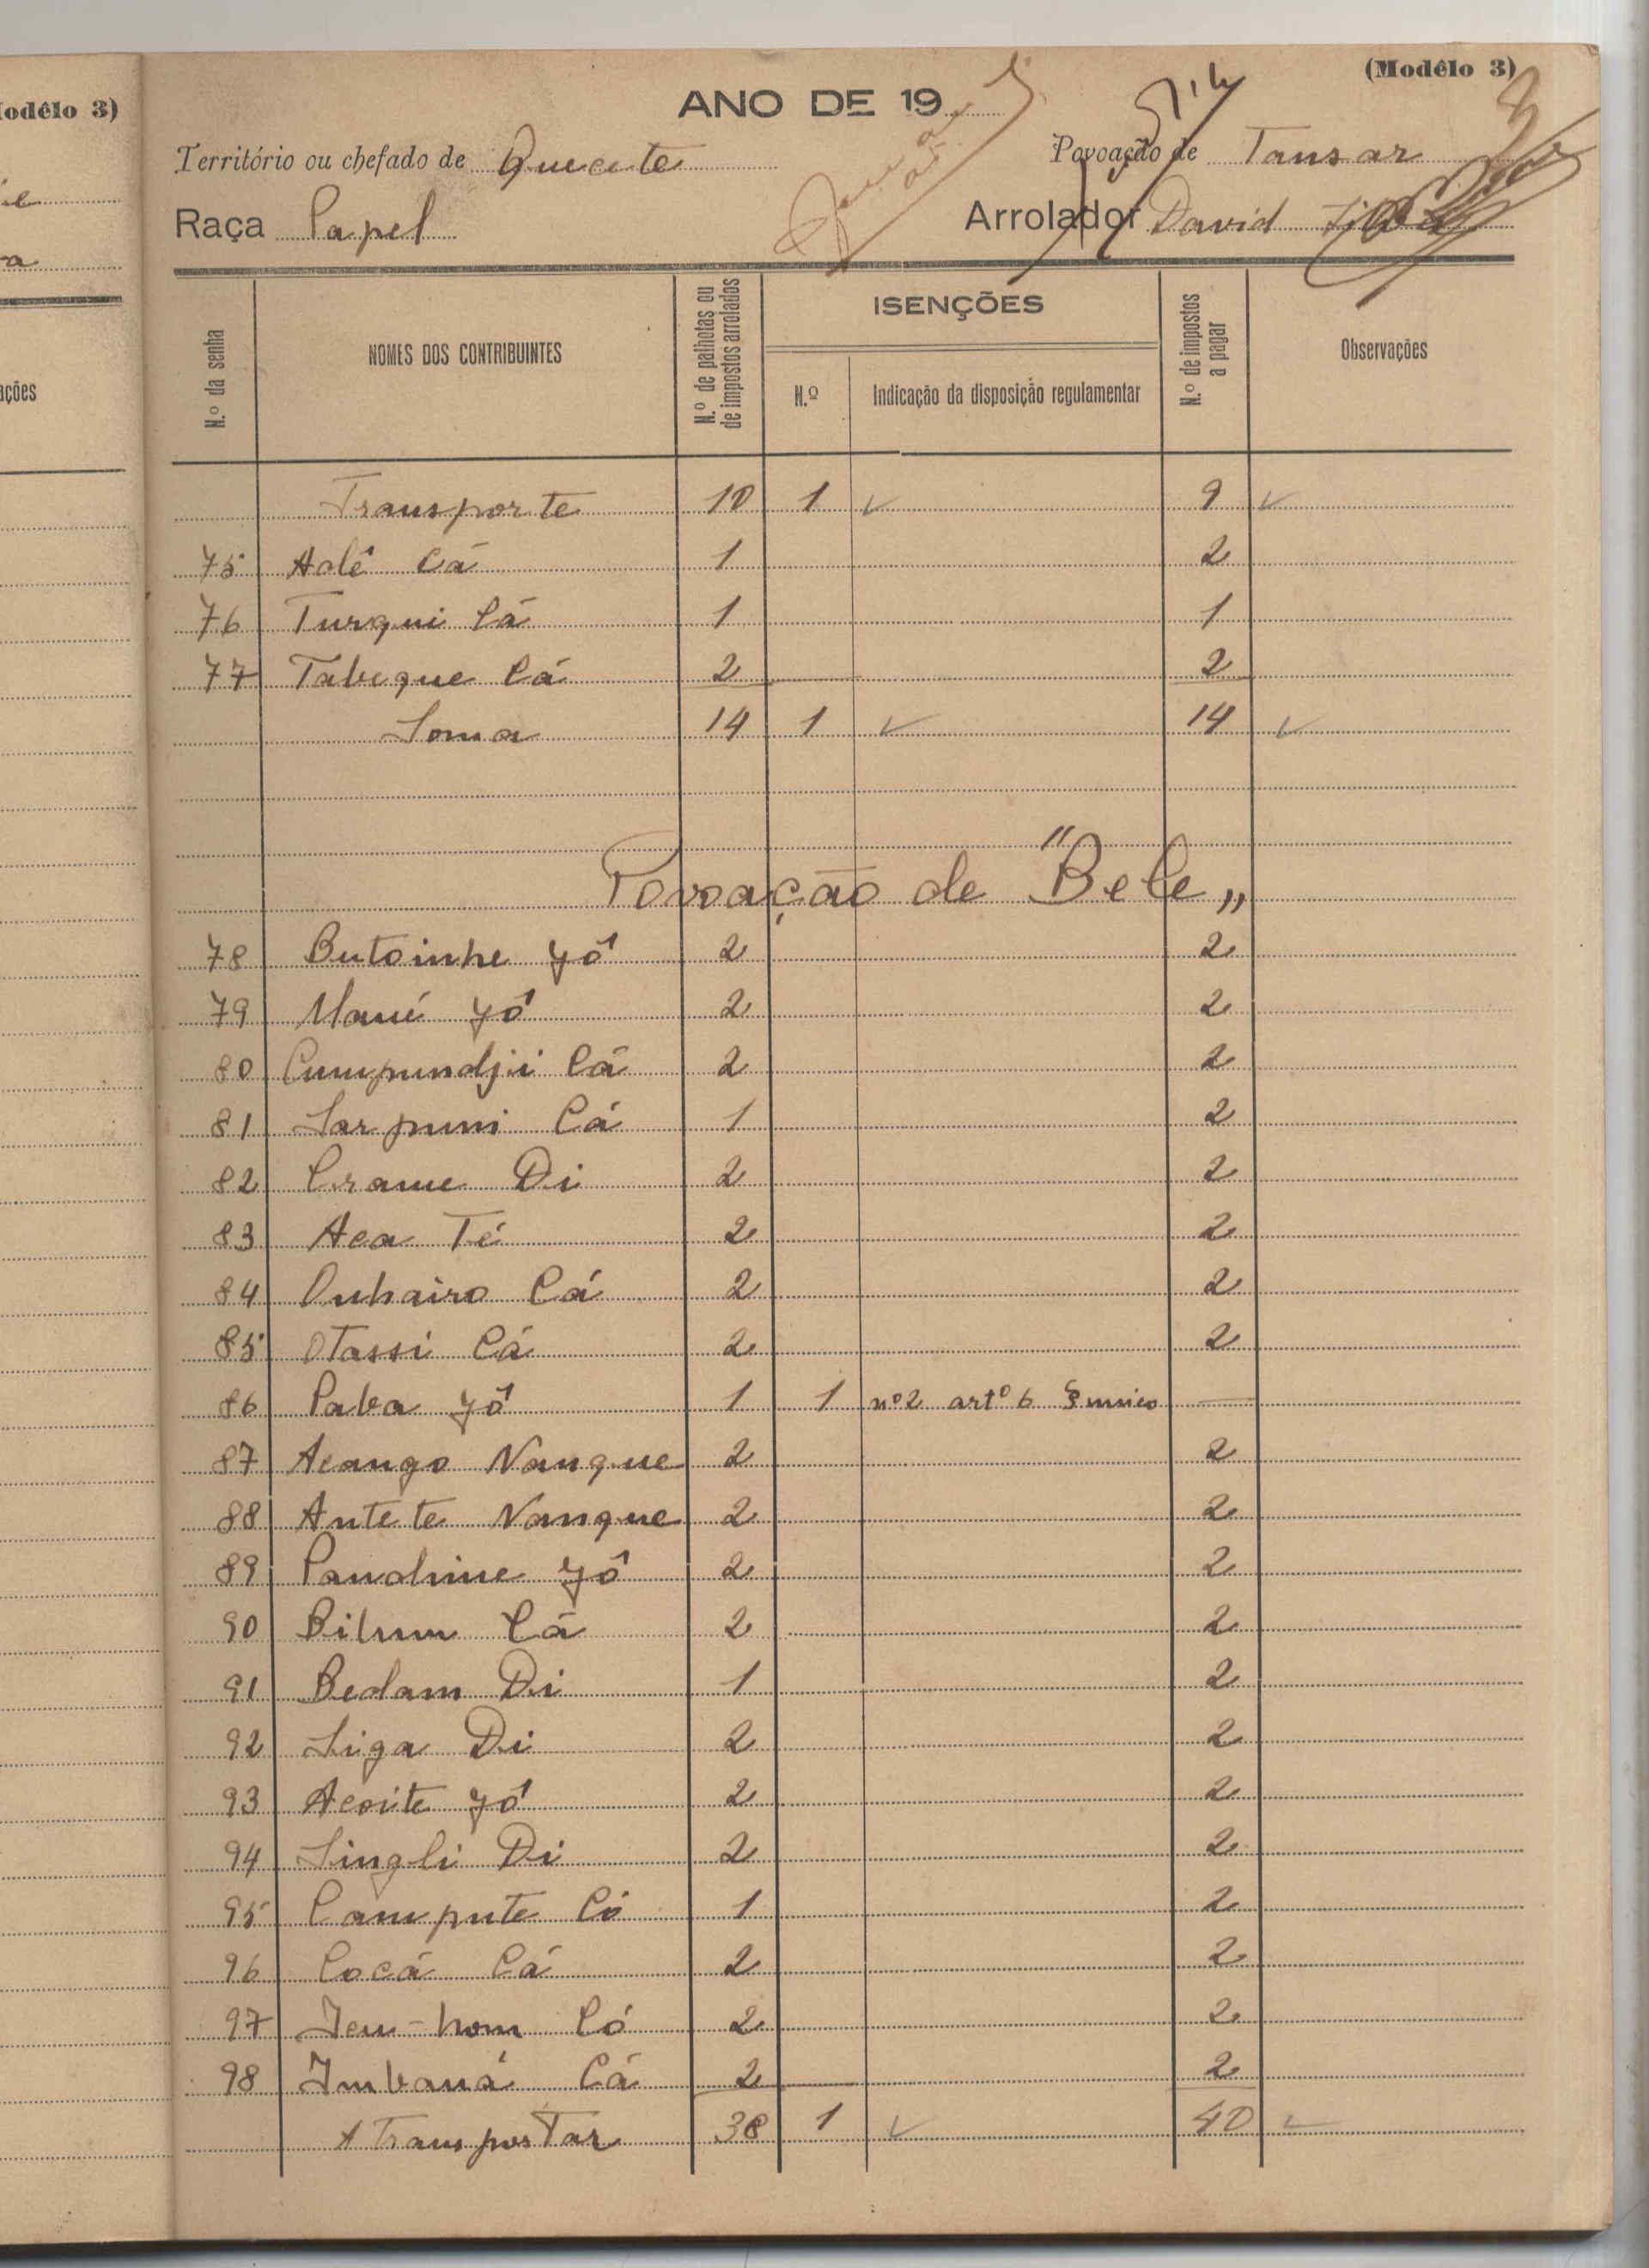 odêlo 3)
ações
(Modêlo 3)
ANO DE 19
Território ou chefado de Quecete
Povoação de Tansar
Raça Papel
Arrolador David
N.º da senha
NOMES DOS CONTRIBUINTES
N.º de palhotas ou de impostos arrolados
ISENÇÕES
N.º
Indicação da disposição regulamentar
N.º de impostos a pagar
Observações
Transporte 10 1 ✓ 9 ✓
75 Aolê Cá 1 2
76 Turqui Cá 1 1
77 Tabeque Cá 2 2
Soma 14 1 ✓ 14 ✓
Povoação de "Bele"
78 Butoinhe Yó 2 2
79 Mané Yó 2 2
80 Cumpundji Cá 2 2
81 Sarpuni Cá 1 2
82 Crame Di 2 2
83 Aca Té 2 2
84 Onhairo Cá 2 2
85 Otassi Cá 2 2
86 Paba Yó 1 1 nº2 artº 6 § unico —
87 Acango Nanque 2 2
88 Antete Nanque 2 2
89 Pandime Yó 2 2
90 Bilum Cá 2 2
91 Bedam Di 1 2
92 Siga Di 2 2
93 Acoite Yó 2 2
94 Singli Di 2 2
95 Campute Có 1 2
96 Cocá Cá 2 2
97 Jem-hom Có 2 2
98 Imbaná Cá 2 2
A Transportar 38 1 ✓ 40 ✓